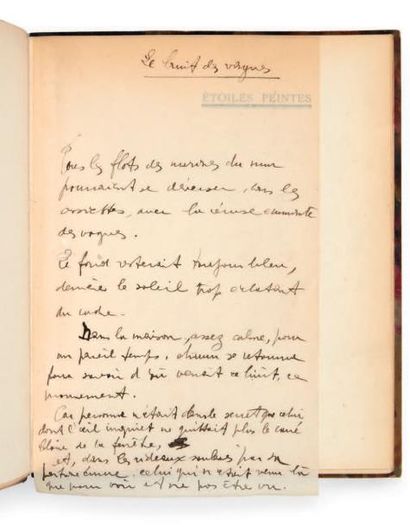 Le bruit des vagues
ÉTOILES PEINTES
Tous les flots des marines du mur
pourraient se déverser, dans les
assiettes, avec la céruse
des vagues.
Le fond resterait toujours bleu,
derrière le soleil trop éclatant
du cadre.
Dans la maison, assez calme, pour
un pareil temps, chacun se retourne
pour savoir d'où venait ce bruit, ce
mouvement.
Car personne n'était dans le secret que celui
dont l'œil inquiet ne quittait plus le carré
blanc de la fenêtre,
et, dans les rideaux soulevés par sa
celui qui n'était venu là
que pour voir et ne pas être vu.